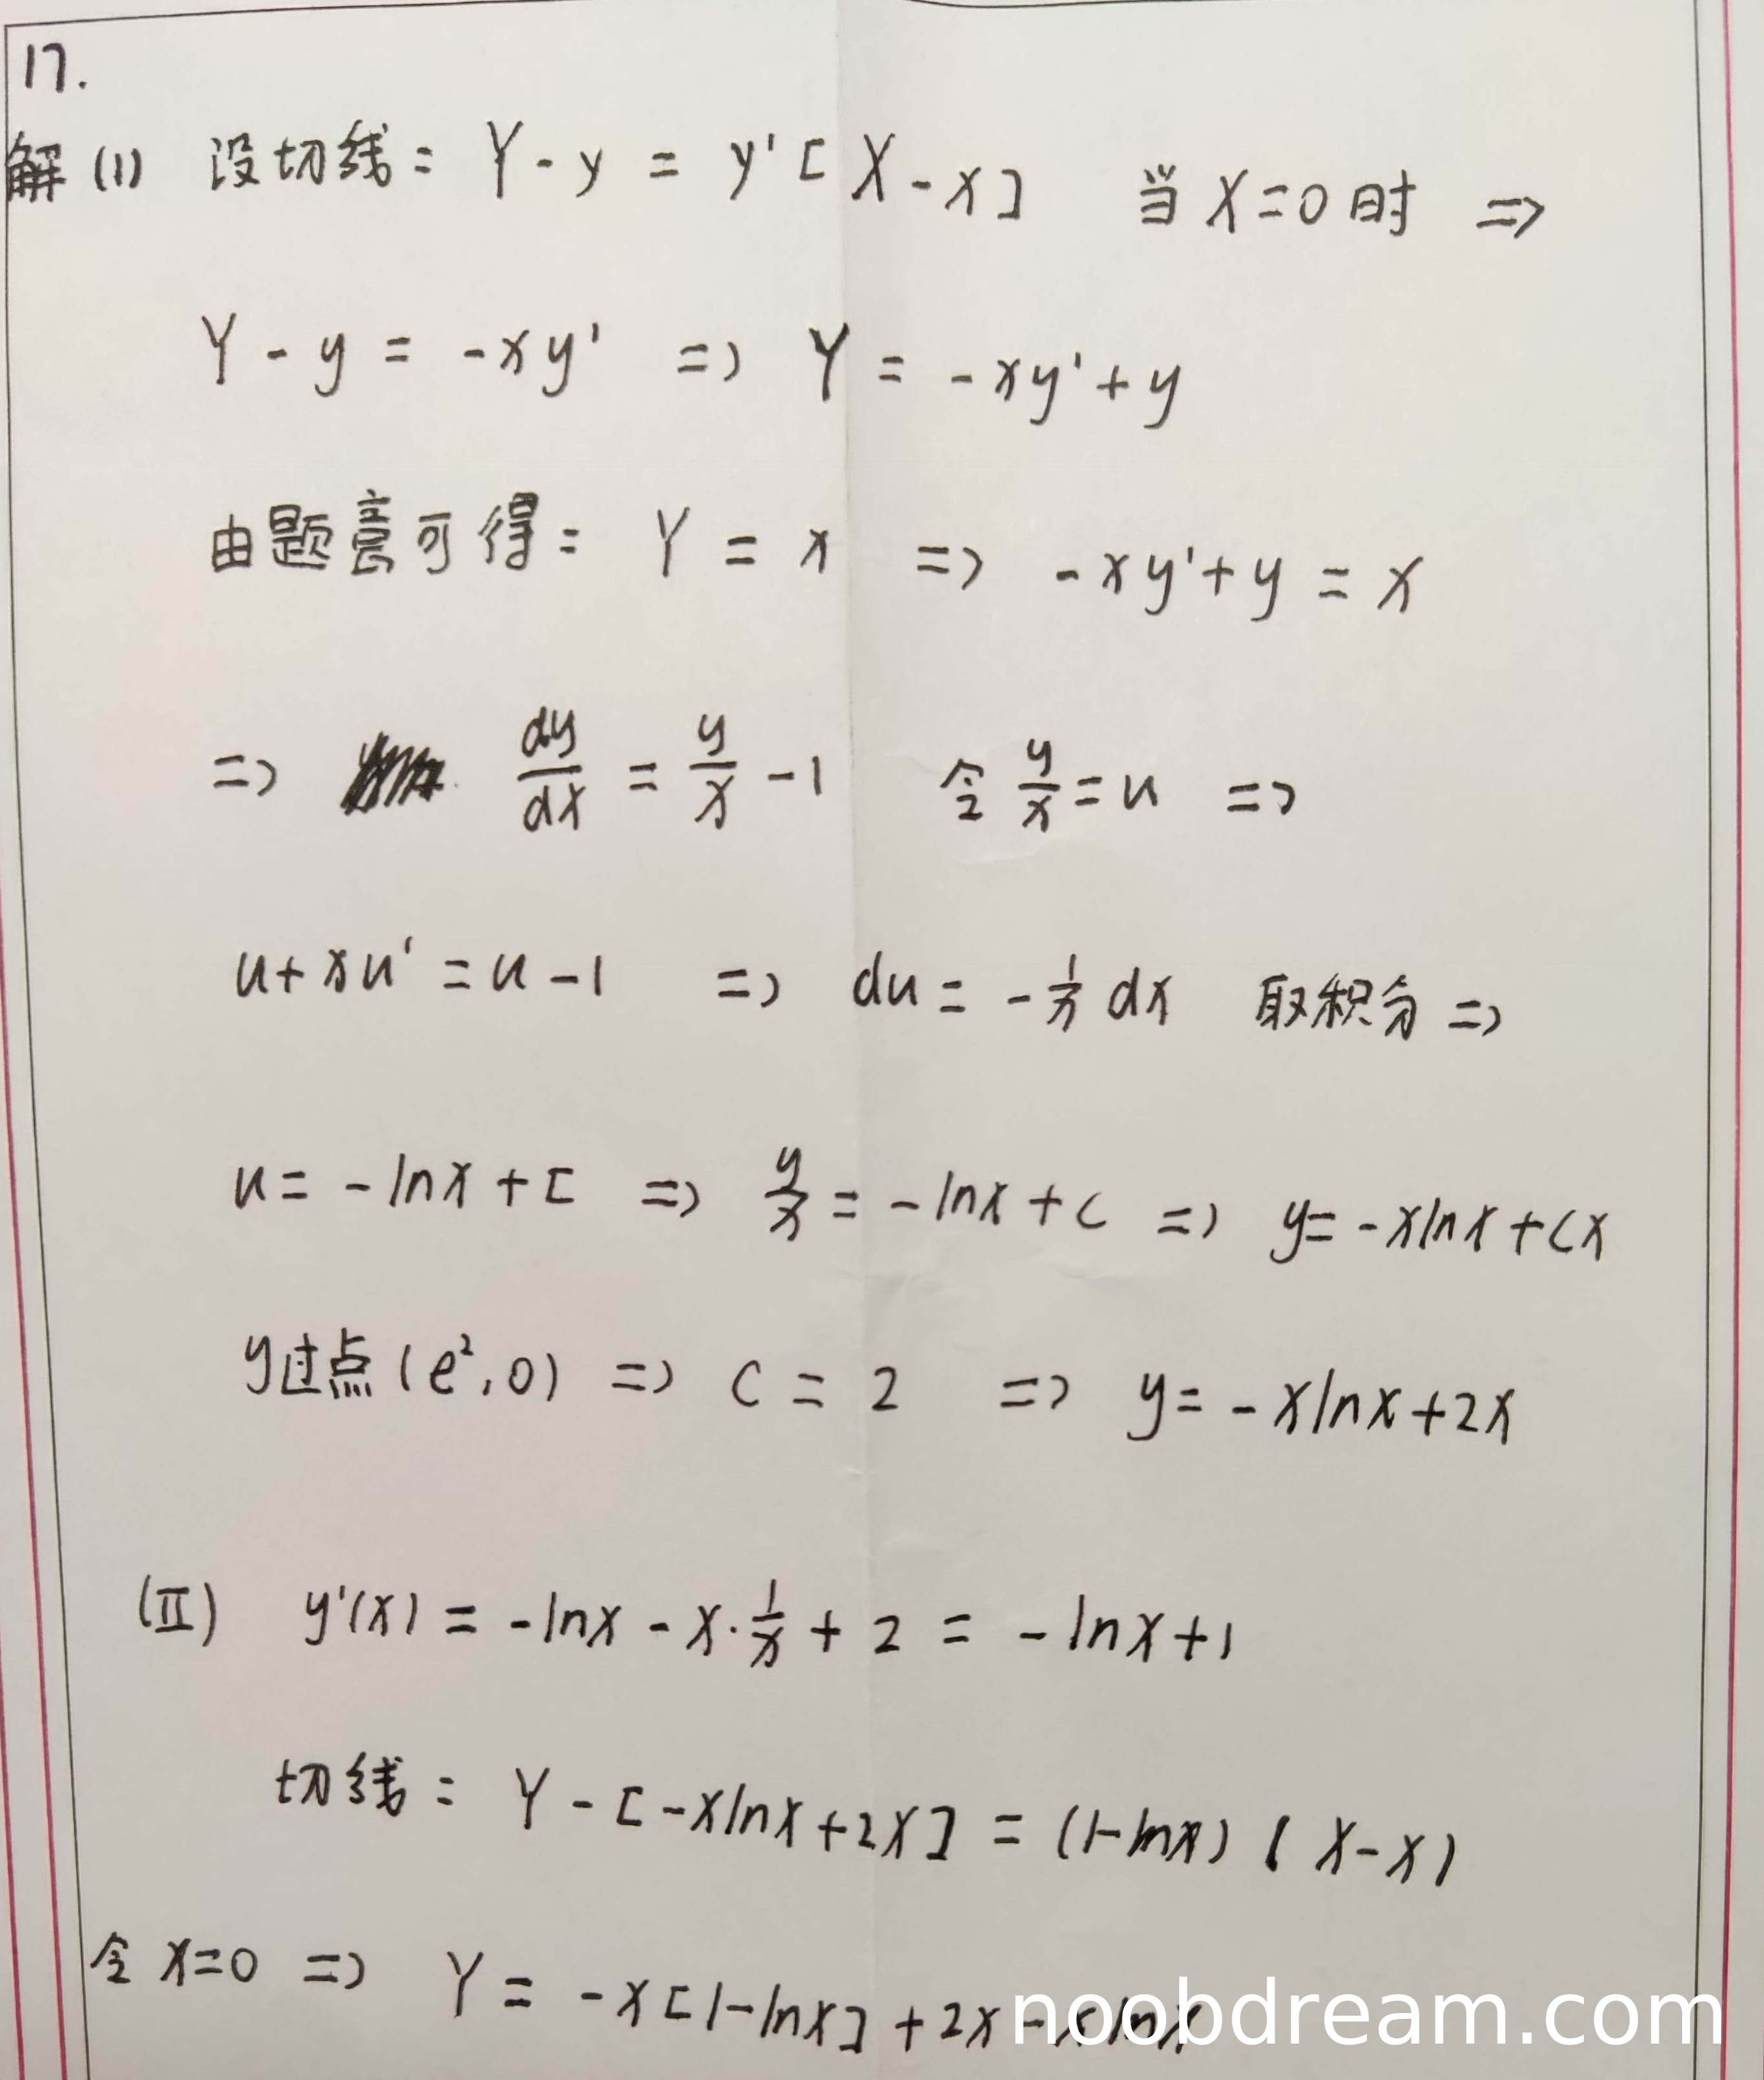 17.
解 (1) 设切线: Y - y = y' [ X - x ] 当 X=0 时 =>
Y - y = -xy' => Y = -xy'+y
由题意可得: Y = x => -xy'+y = x
=> dy/dx = y/x - 1 令 y/x = u =>
u+xu' = u-1 => du = -1/x dx 取积分 =>
u = -lnx + C => y/x = -lnx + C => y = -xlnx + Cx
y过点(e²,0) => C = 2 => y = -xlnx+2x
(II) y'(x) = -lnx - x·1/x + 2 = -lnx+1
切线: Y - [-xlnx+2x] = (1-lnx) ( X-x)
令 X=0 => Y = -x[1-lnx] + 2x - xlnx
noobdream.com